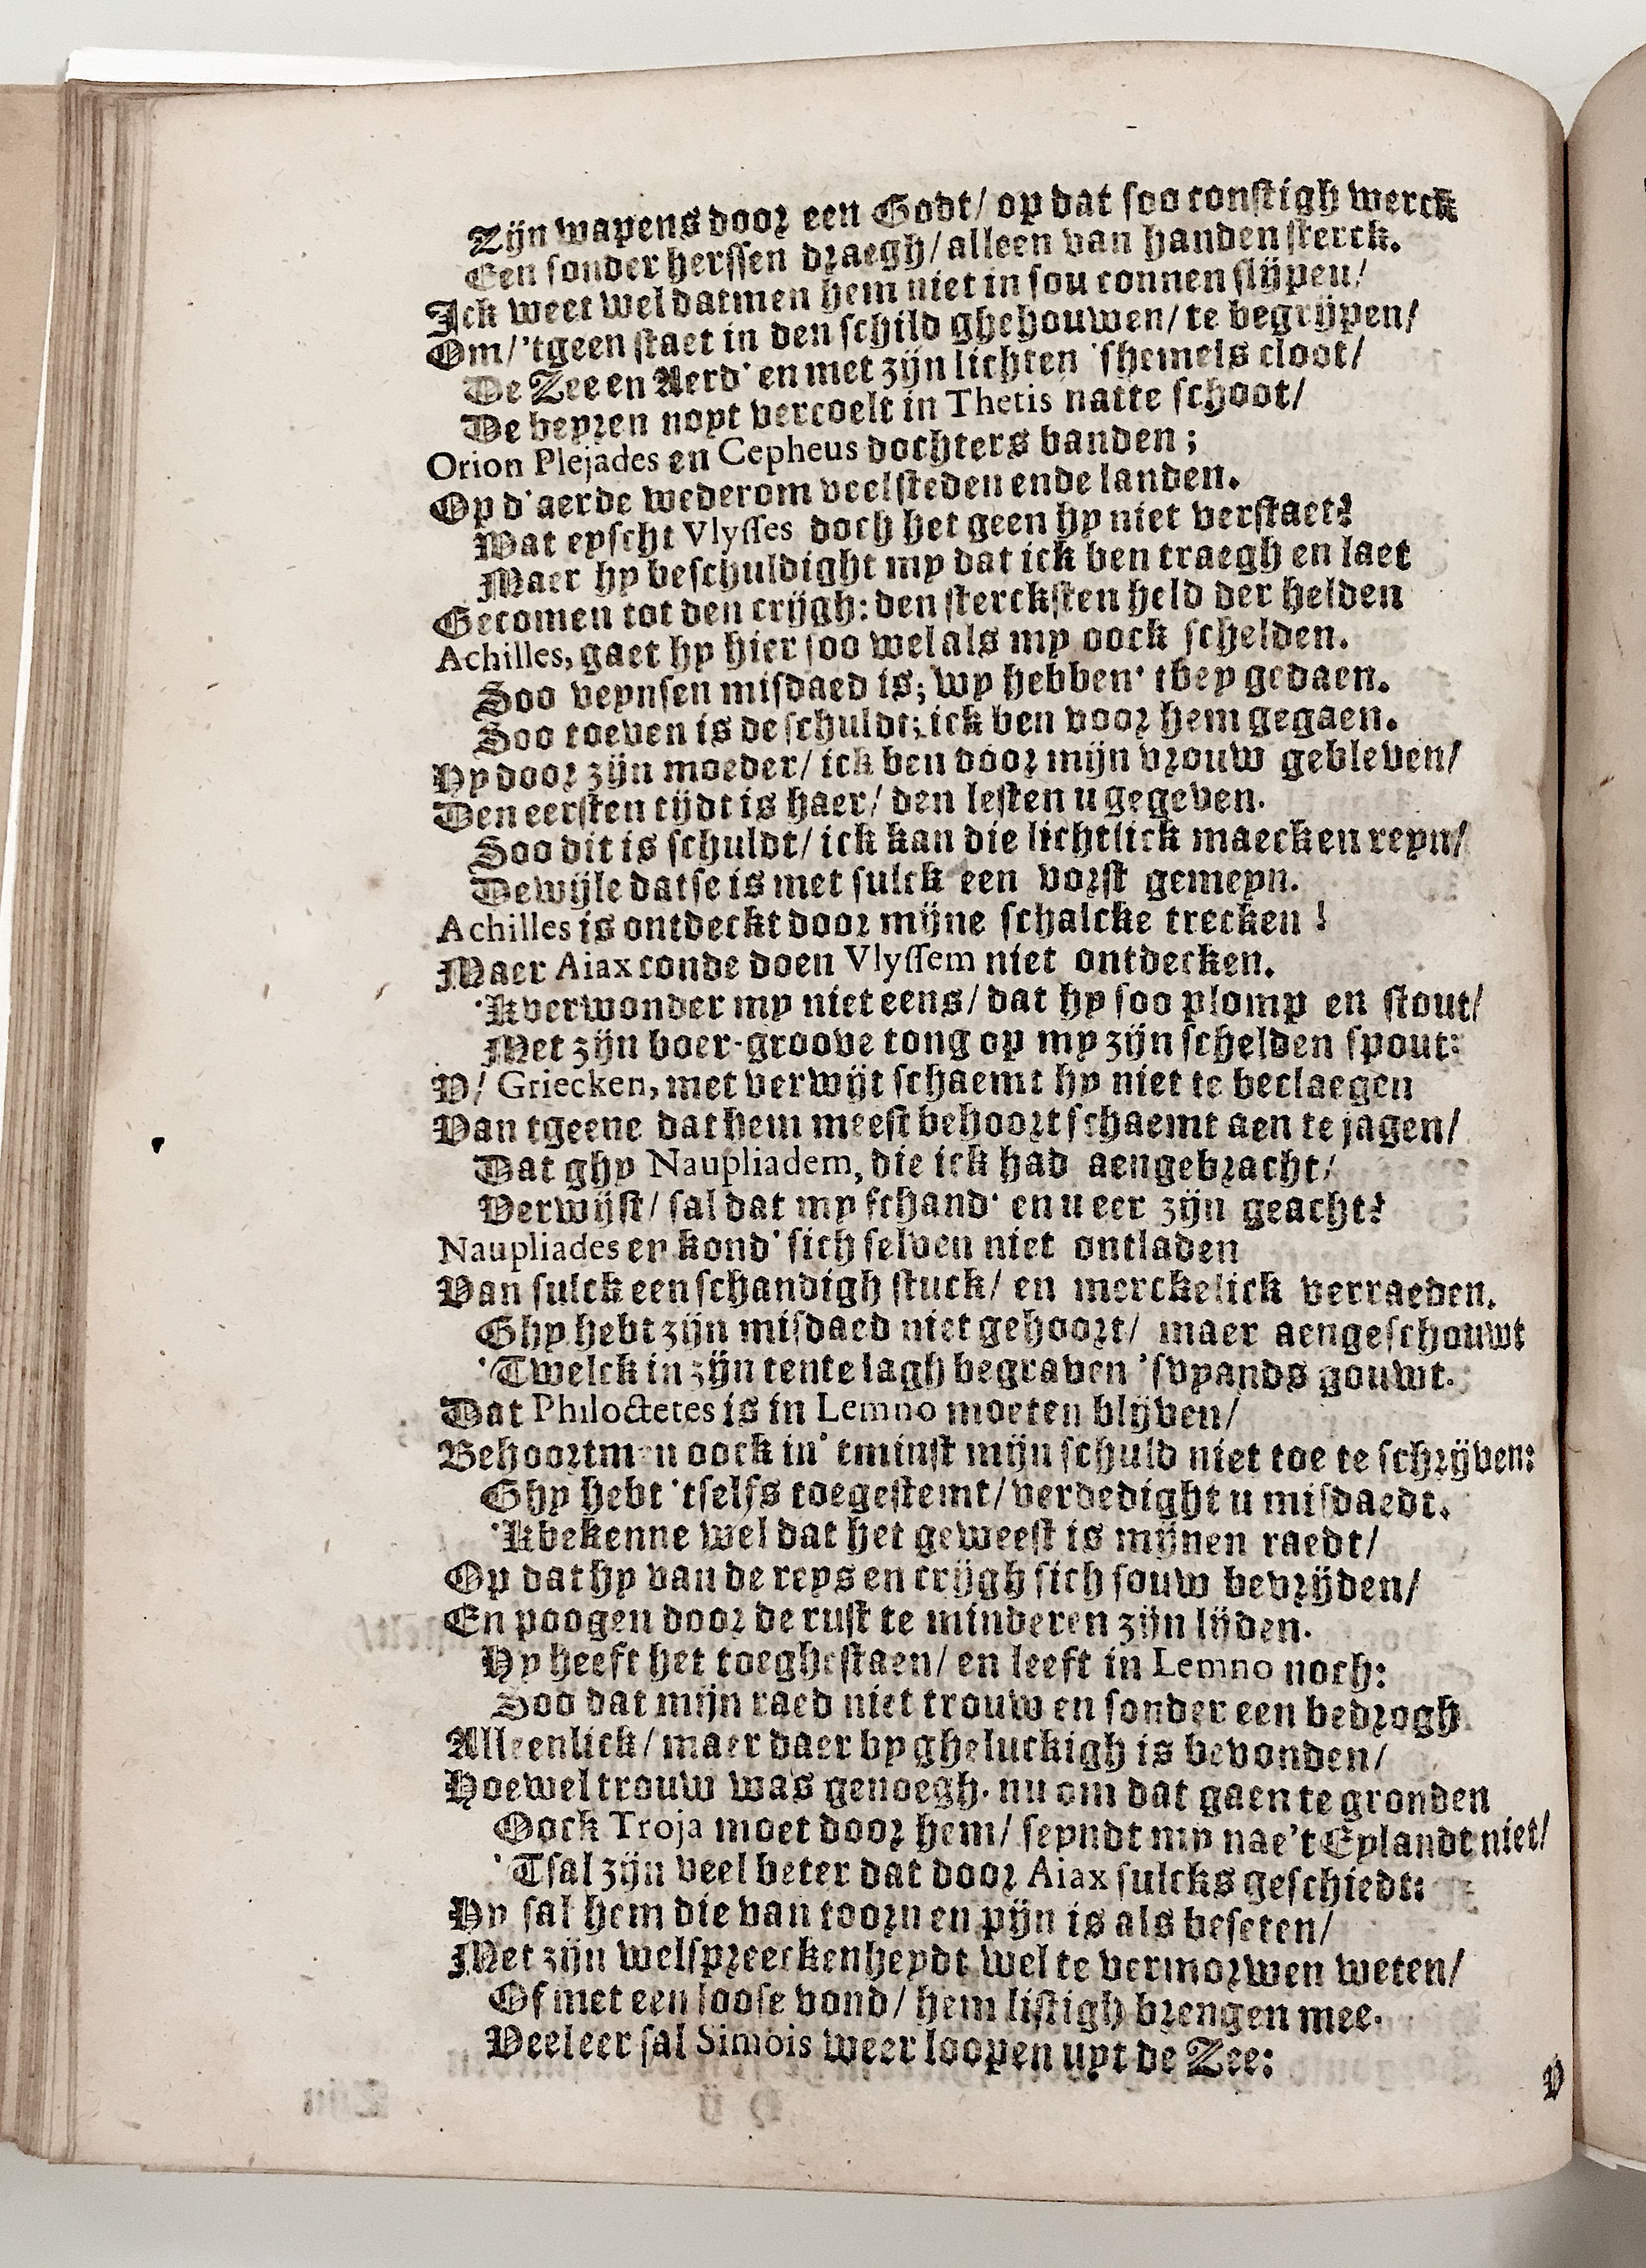 Zijn wapens door een Godt/ op dat soo constigh werck
Een sonder herssen draegh/ alleen van handen sterck.
Ick weet wel datmen hem niet in sou connen slijpen/
Om/ 'tgeen staet in den schild ghehouwen/ te begrijpen/
De Zee en Aerd' en met zijn lichten 'shemels cloot/
De beyren noyt vercoelt in Thetis natte schoot/
Orion Plejades en Cepheus dochters banden;
Op d'aerde wederom veel steden ende landen.
Wat eyscht Vlysses doch het geen hy niet verstaet?
Maer hy beschuldight my dat ick ben traegh en laet
Gecomen tot den crijgh: den stercksten held der helden
Achilles, gaet hy hier soo wel als my oock schelden.
Soo veynsen misdaed is; wy hebben' tbey gedaen.
Soo toeven is de schuldt; ick ben voor hem gegaen.
Hy door zijn moeder/ ick ben door mijn vrouw gebleven/
Den eersten tijdt is haer/ den lesten u gegeven.
Soo dit is schuldt/ ick kan die lichtlick maecken reyn/
Dewijle datse is met sulck een vorst gemeyn.
Achilles is ontdeckt door mijne schalcke trecken!
Maer Aiax conde doen Vlyssem niet ontdecken.
'Kverwonder my niet eens/ dat hy soo plomp en stout/
Met zijn boer-groove tong op my zijn schelden spout:
V/ Griecken, met verwijt schaemt hy niet te beclaegen
Van tgeene dat hem meest behoort schaemt aen te jagen/
Dat ghy Naupliadem, die ick had aengebracht/
Verwijst/ sal dat my schand' en u eer zijn geacht?
Naupliades en kond' sich selven niet ontladen
Van sulck een schandigh stuck/ en merckelick verraeden.
Ghy hebt zijn misdaed niet gehoort/ maer aengeschouwt
'Twelck in zijn tente lagh begraven 'svyands gouwt.
Dat Philoctetes is in Lemno moeten blijven/
Behoortmen oock in' tminst mijn schuld niet toe te schrijven:
Ghy hebt 'tselfs toegestemt/ verdedight u misdaedt.
'Kbekenne wel dat het geweest is mijnen raedt/
Op dat hy van de reys en crijgh sich souw bevrijden/
En poogen door de rust te minderen zijn lijden.
Hy heeft het toeghestaen/ en leeft in Lemno noch:
Soo dat mijn raed niet trouw en sonder een bedrogh
Alleenlick/ maer daer by gheluckigh is bevonden/
Hoewel trouw was genoegh. nu om dat gaen te gronden
Oock Troja moet door hem/ seyndt my nae't Eylandt niet/
'Tsal zijn veel beter dat door Aiax sulcks geschiedt:
Hy sal hem die van toorn en pijn is als beseten/
Met zijn welspreeckenheydt wel te vermorwen weten/
Of met een loose vond/ hem listigh brengen mee.
Veeleer sal Simois weer loopen uyt de Zee:
V